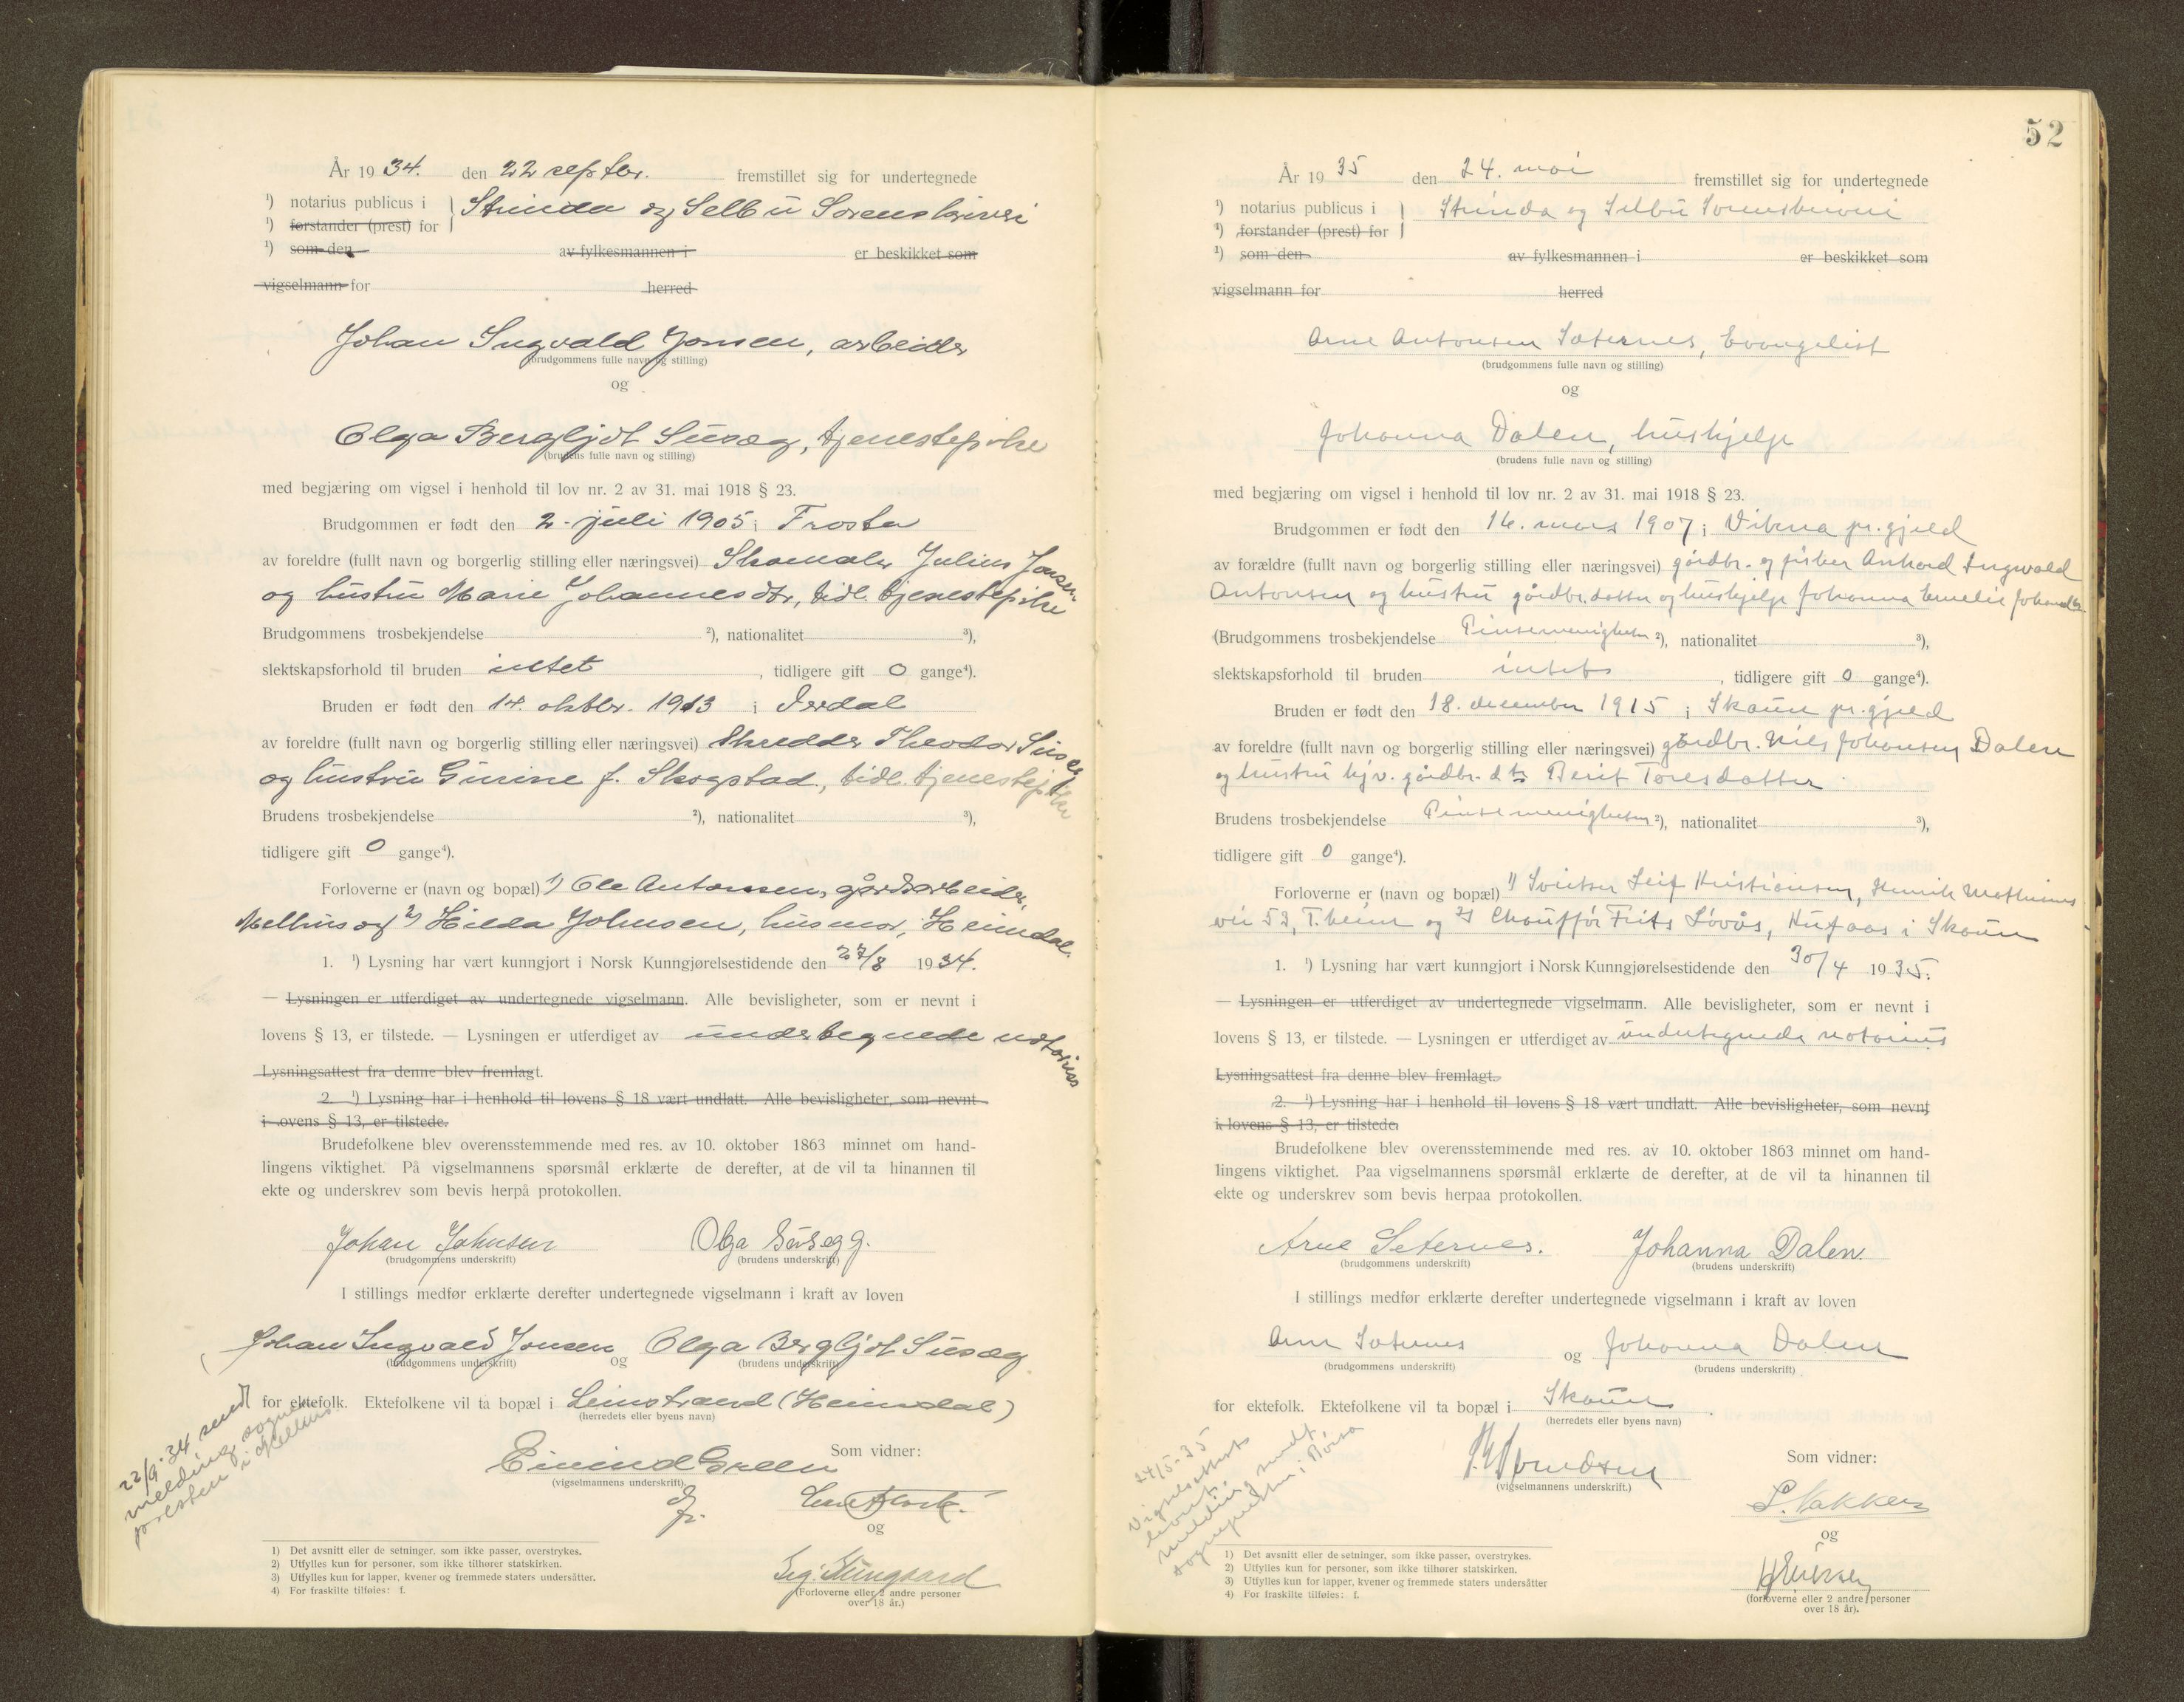 År 1934. den 22 septbr. fremstillet sig for undertegnede
¹) notarius publicus i Strinda og Selbu Sorenskriveri
¹) forstander (prest) for
¹) som den av fylkesmannen i er beskikket som
vigselmann for herred
Johan Ingvald Jonsen, arbeider
(brudgommens fulle navn og stilling)
og
Olga Bergljot Susæg, tjenestepike
(brudens fulle navn og stilling)
med begjæring om vigsel i henhold til lov nr. 2 av 31. mai 1918 § 23.
Brudgommen er født den 2. juli 1905 i Frosta
av foreldre (fullt navn og borgerlig stilling eller næringsvei) Skomaker Julius Jonsen
og hustru Marie Johannesdtr, tidl. tjenestepike
Brudgommens trosbekjendelse ²), nationalitet ³),
slektskapsforhold til bruden intet , tidligere gift 0 gange⁴).
Bruden er født den 14. oktbr. 1913 i
av foreldre (fullt navn og borgerlig stilling eller næringsvei) Skredder Theodor Susæg
og hustru Gurine f. Skogstad, tidl. tjenestepike
Brudens trosbekjendelse ²), nationalitet ³),
tidligere gift 0 gange⁴).
Forloverne er (navn og bopæl) 1) Ole Antonsen, gårdsarbeider,
Melhus og 2) Hilda Johnsen, husmor, Heimdal.
1. ¹) Lysning har vært kunngjort i Norsk Kunngjørelsestidende den 27/8 1934.
— Lysningen er utferdiget av undertegnede vigselmann. Alle bevisligheter, som er nevnt i
lovens § 13, er tilstede. — Lysningen er utferdiget av undertegnede notarius
Lysningsattest fra denne blev fremlagt.
2. ¹) Lysning har i henhold til lovens § 18 vært undlatt. Alle bevisligheter, som nevnt
i lovens § 13, er tilstede.
Brudefolkene blev overensstemmende med res. av 10. oktober 1863 minnet om hand-
lingens viktighet. På vigselmannens spørsmål erklærte de derefter, at de vil ta hinannen til
ekte og underskrev som bevis herpå protokollen.
Johan Johnsen Olga Susegg.
(brudgommens underskrift) (brudens underskrift)
I stillings medfør erklærte derefter undertegnede vigselmann i kraft av loven
Johan Ingvald Jonsen og Olga Bergljot Susæg
(brudgommens underskrift) (brudens underskrift)
for ektefolk. Ektefolkene vil ta bopæl i Leinstrand (Heimdal)
(herredets eller byens navn)
22/9-34 sendt
melding sogne-
presten i Melhus.
Som vidner:
Eivind Green
(vigselmannens underskrift).
og
(Forloverne eller 2 andre personer
over 18 år.)
1) Det avsnitt eller de setninger, som ikke passer, overstrykes.
2) Utfylles kun for personer, som ikke tilhører statskirken.
3) Utfylles kun for lapper, kvener og fremmede staters undersåtter.
4) For fraskilte tilføies: f.
52
År 1935 den 24. mai fremstillet sig for undertegnede
¹) notarius publicus i Strinda og Selbu Sorenskriveri
¹) forstander (prest) for
¹) som den av fylkesmannen i er beskikket som
vigselmann for herred
Arne Antonsen Sæternes, Evangelist
(brudgommens fulle navn og stilling)
og
Johanna Dalen, hushjelp
(brudens fulle navn og stilling)
med begjæring om vigsel i henhold til lov nr. 2 av 31. mai 1918 § 23.
Brudgommen er født den 16. mars 1907 i Vikna pr.gjeld
av forældre (fullt navn og borgerlig stilling eller næringsvei) gårdbr. og fisker Ingvald
Antonsen og hustru gårdbr.datter og hushjelp Johanna Emelie
(Brudgommens trosbekjendelse Pinsemenigheten ²), nationalitet ³),
slektskapsforhold til bruden intet , tidligere gift 0 gange⁴).
Bruden er født den 18. desember 1915 i Skaun pr.gjeld
av foreldre (fullt navn og borgerlig stilling eller næringsvei) gårdbr. Nils Johansen Dalen
og hustru hjv. gårdbr. dtr Berit Toresdatter
Brudens trosbekjendelse Pinsemenigheten ²), nationalitet ³),
tidligere gift 0 gange⁴).
Forloverne er (navn og bopæl) 1) Leif Kristiansen, Henrik Mathisens
vei 52, T.heim og 2) Chauffør Frits Løvås, i Skaun
1. ¹) Lysning har vært kunngjort i Norsk Kunngjørelsestidende den 30/4 1935.
— Lysningen er utferdiget av undertegnede vigselmann. Alle bevisligheter, som er nevnt i
lovens § 13, er tilstede. — Lysningen er utferdiget av undertegnede notarius
Lysningsattest fra denne blev fremlagt.
2. ¹) Lysning har i henhold til lovens § 18 vært undlatt. Alle bevisligheter, som nevnt
i lovens § 13, er tilstede
Brudefolkene blev overensstemmende med res. av 10. oktober 1863 minnet om hand-
lingens viktighet. Paa vigselmannens spørsmål erklærte de derefter, at de vil ta hinannen til
ekte og underskrev som bevis herpaa protokollen.
Arne Seternes. Johanna Dalen.
(brudgommens underskrift) (brudens underskrift)
I stillings medfør erklærte derefter undertegnede vigselmann i kraft av loven
Arne Sæternes og Johanna Dalen
(brudgommens underskrift) (brudens underskrift)
for ektefolk. Ektefolkene vil ta bopæl i Skaun
(herredets eller byens navn)
24/5-35
Vigselsattest
melding sendt
sognepresten i Børsa
Som vidner:
(vigselmannens underskrift.)
og
(forloverne eller 2 andre personer
over 18 år).
1) Det avsnitt eller de setninger, som ikke passer, overstrykes.
2) Utfylles kun for personer, som ikke tilhører statskirken.
3) Utfylles kun for lapper, kvener og fremmede staters undersåtter
4) For fraskilte tilføies: f.